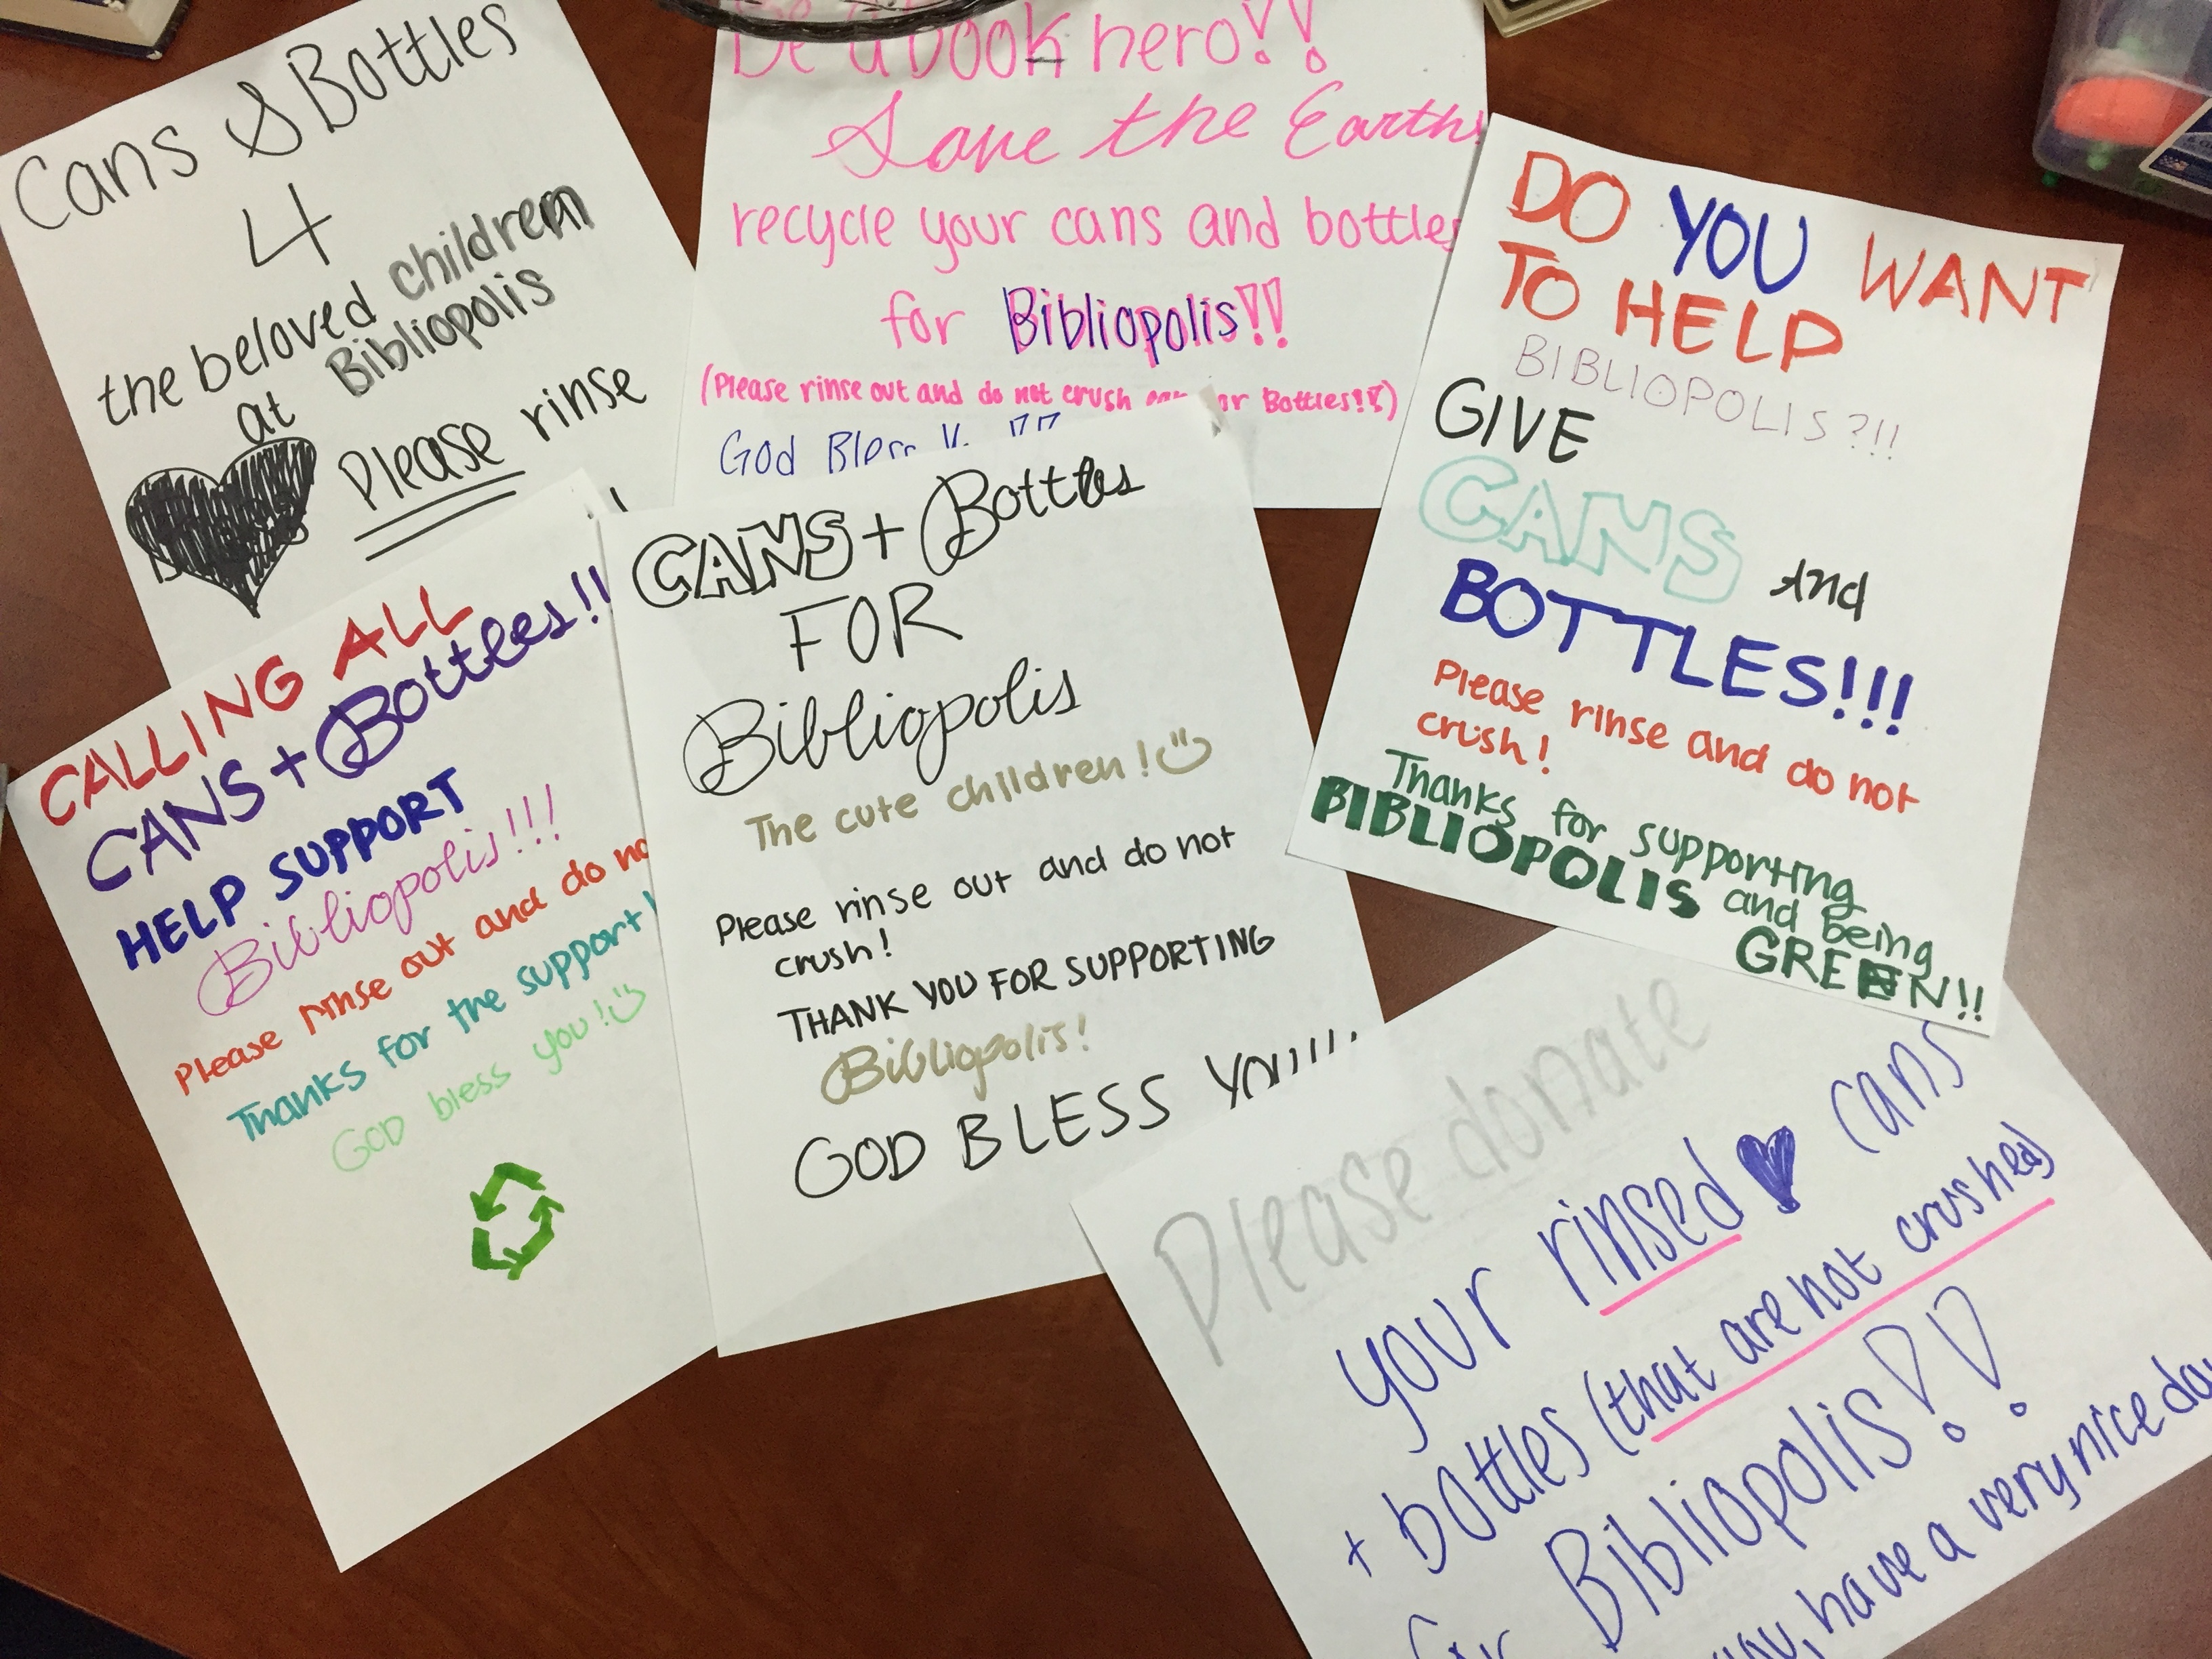 Cans & Bottles
4
the beloved children
at Bibliopolis
Please rinse
Be a book hero!!
Save the Earth!
recycle your cans and bottles
for Bibliopolis!!
(Please rinse out and do not crush or Bottles!!)
God Bless
DO YOU WANT
TO HELP
BIBLIOPOLIS?!!
GIVE
CANS and
BOTTLES!!!
Please rinse and do not
crush!
Thanks for supporting
BIBLIOPOLIS and being
GREEN!!
CALLING ALL
CANS + Bottles!!
HELP SUPPORT
Bibliopolis!!!
Please rinse out and do no
Thanks for the support!
GOD bless you!
CANS + Bottles
FOR
Bibliopolis
The cute children!
Please rinse out and do not
crush!
THANK YOU FOR SUPPORTING
Bibliopolis!
GOD BLESS YOU!!!!
Please donate
your rinsed cans
+ bottles (that are not crushed)
for Bibliopolis!!
you, have a very nice day